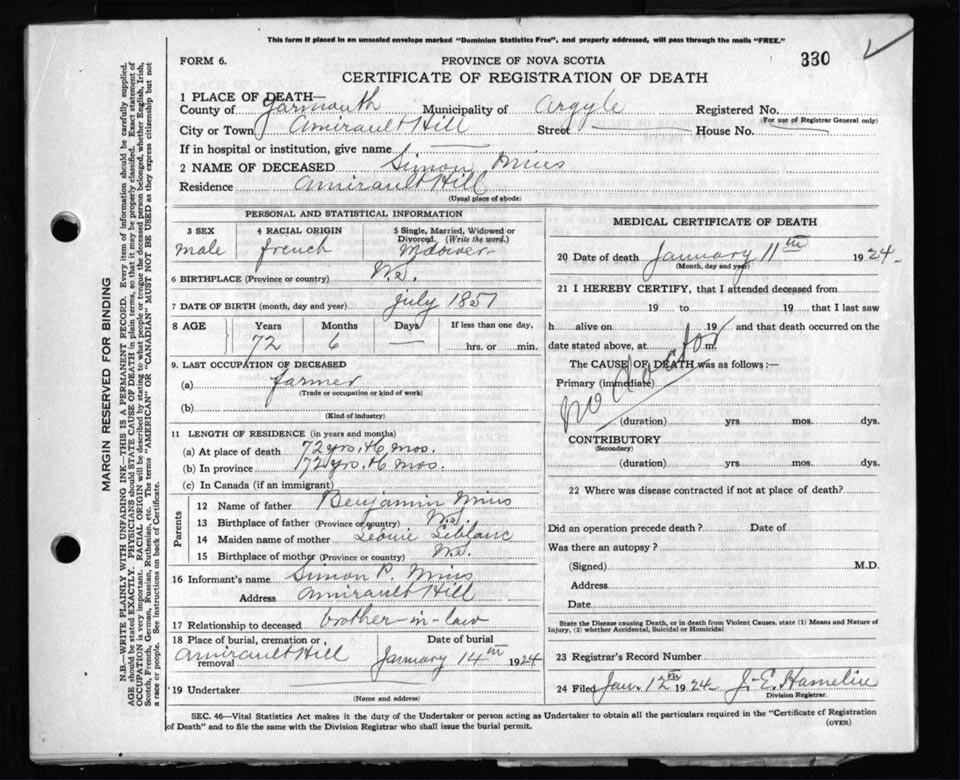 This form if placed in an unsealed envelope marked "Dominion Statistics Free", and properly addressed, will pass through the mails "FREE."
FORM 6.
PROVINCE OF NOVA SCOTIA
330
CERTIFICATE OF REGISTRATION OF DEATH
1 PLACE OF DEATH—
County of Yarmouth Municipality of Argyle Registered No.
(For use of Registrar General only)
City or Town Amirault Hill Street House No.
If in hospital or institution, give name
2 NAME OF DECEASED Simon Mius
Residence Amirault Hill
(Usual place of abode)
PERSONAL AND STATISTICAL INFORMATION
3 SEX 4 RACIAL ORIGIN 5 Single, Married, Widowed or Divorced. (Write the word.)
male french Widower
6 BIRTHPLACE (Province or country) N.S.
7 DATE OF BIRTH (month, day and year) July 1851
8 AGE Years Months Days If less than one day,
72 6 — hrs. or min.
9. LAST OCCUPATION OF DECEASED
(a) farmer
(Trade or occupation or kind of work)
(b)
(Kind of industry)
11 LENGTH OF RESIDENCE (in years and months)
(a) At place of death 72 yrs. & 6 mos.
(b) In province 72 yrs. & 6 mos.
(c) In Canada (if an immigrant)
Parents
12 Name of father Benjamin Mius
13 Birthplace of father (Province or country) N.S.
14 Maiden name of mother Leonie Leblanc
15 Birthplace of mother (Province or country) N.S.
16 Informant's name Simon P. Mius
Address Amirault Hill
17 Relationship to deceased brother-in-law
18 Place of burial, cremation or removal Date of burial
Amirault Hill January 14th 1924
19 Undertaker
(Name and address)
MEDICAL CERTIFICATE OF DEATH
20 Date of death January 11th 1924
(Month, day and year)
21 I HEREBY CERTIFY, that I attended deceased from
19 to 19 that I last saw
h alive on 19 and that death occurred on the
date stated above, at m.
The CAUSE OF DEATH was as follows:—
Primary (immediate)
no doctor
(duration) yrs mos. dys.
CONTRIBUTORY
(Secondary)
(duration) yrs. mos. dys.
22 Where was disease contracted if not at place of death?
Did an operation precede death? Date of
Was there an autopsy?
(Signed) M.D.
Address
Date
State the Disease causing Death, or in death from Violent Causes. state (1) Means and Nature of Injury, (2) whether Accidental, Suicidal or Homicidal
23 Registrar's Record Number
24 Filed Jan. 12th 1924 J. E. Hamelin
Division Registrar.
SEC. 46—Vital Statistics Act makes it the duty of the Undertaker or person acting as Undertaker to obtain all the particulars required in the "Certificate of Registration
of Death" and to file the same with the Division Registrar who shall issue the burial permit.
(OVER)
MARGIN RESERVED FOR BINDING
N.B.—WRITE PLAINLY WITH UNFADING INK—THIS IS A PERMANENT RECORD. Every item of information should be carefully supplied.
AGE should be stated EXACTLY. PHYSICIANS should STATE CAUSE OF DEATH in plain terms, so that it may be properly classified. Exact statement of
OCCUPATION is very important. RACIAL ORIGIN will be described by stating to what people or tongue the deceased person belonged, whether English, Irish,
Scotch, French, German, Russian, Ruthenian, etc. The terms "AMERICAN" OR "CANADIAN" MUST NOT BE USED as they express citizenship but not
a race or people. See instructions on back of Certificate.